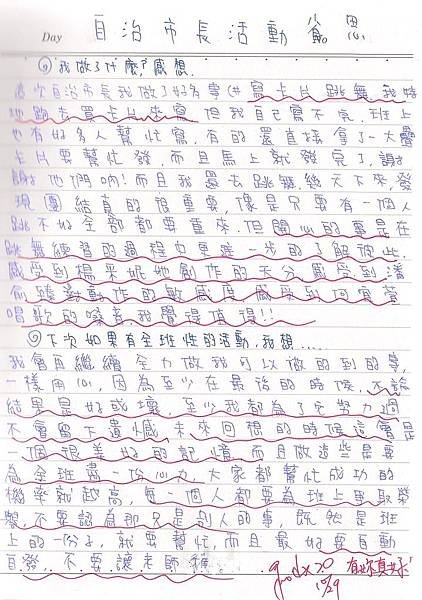 自治市長活動省思
Day
◎我做了什麼?感想.
這次自治市長我做了好多事(#寫卡片跳舞.我特
地跑去買卡片來寫 但我自己寫不完,班上
也有好多人幫忙寫,有的還直接拿了一大疊
卡片要幫忙發,而且馬上就發完了,謝
謝他們唷!而且我還去跳舞.幾天下來,發
現團結真的很重要,像是只要有一個人
跳不好全部都要重來.但開心的事是在
跳舞練習的過程也更進一步的了解彼此.
感受到楊采妮她創作的天分.感受到潘
俞臻對動作的敏感度.感受到何宜萱
唱歌的嗓音.我覺得值得!!
◎下次如果有全班性的活動,我想.....
我會再繼續全力做我可以做的到的事,
一樣用心,因為至少在最後的時候,不論
結果是好或壞,至少我都為了它努力過
不會留下遺憾 未來回想的時候這會是
一個很美好的記憶 而且做這些是要
為全班盡一份心力,大家都幫忙成功的
機率就越高,每一個人都要為班上爭取榮
譽,不要認為那只是別人的事,既然是班
上的一份子,就要幫忙,而且最好要自動
自發.不要讓老師
good×20 有妳真好
10/29